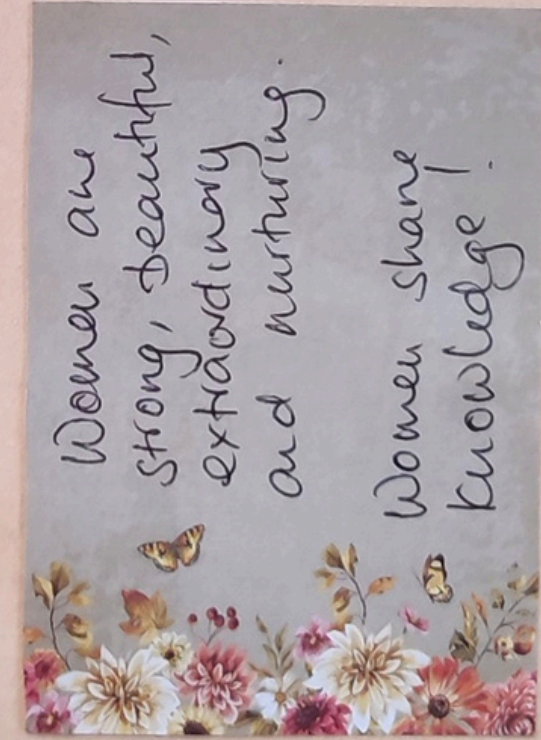 Women are
strong, beautiful,
extraordinary
and nurturing.
Women share
knowledge!